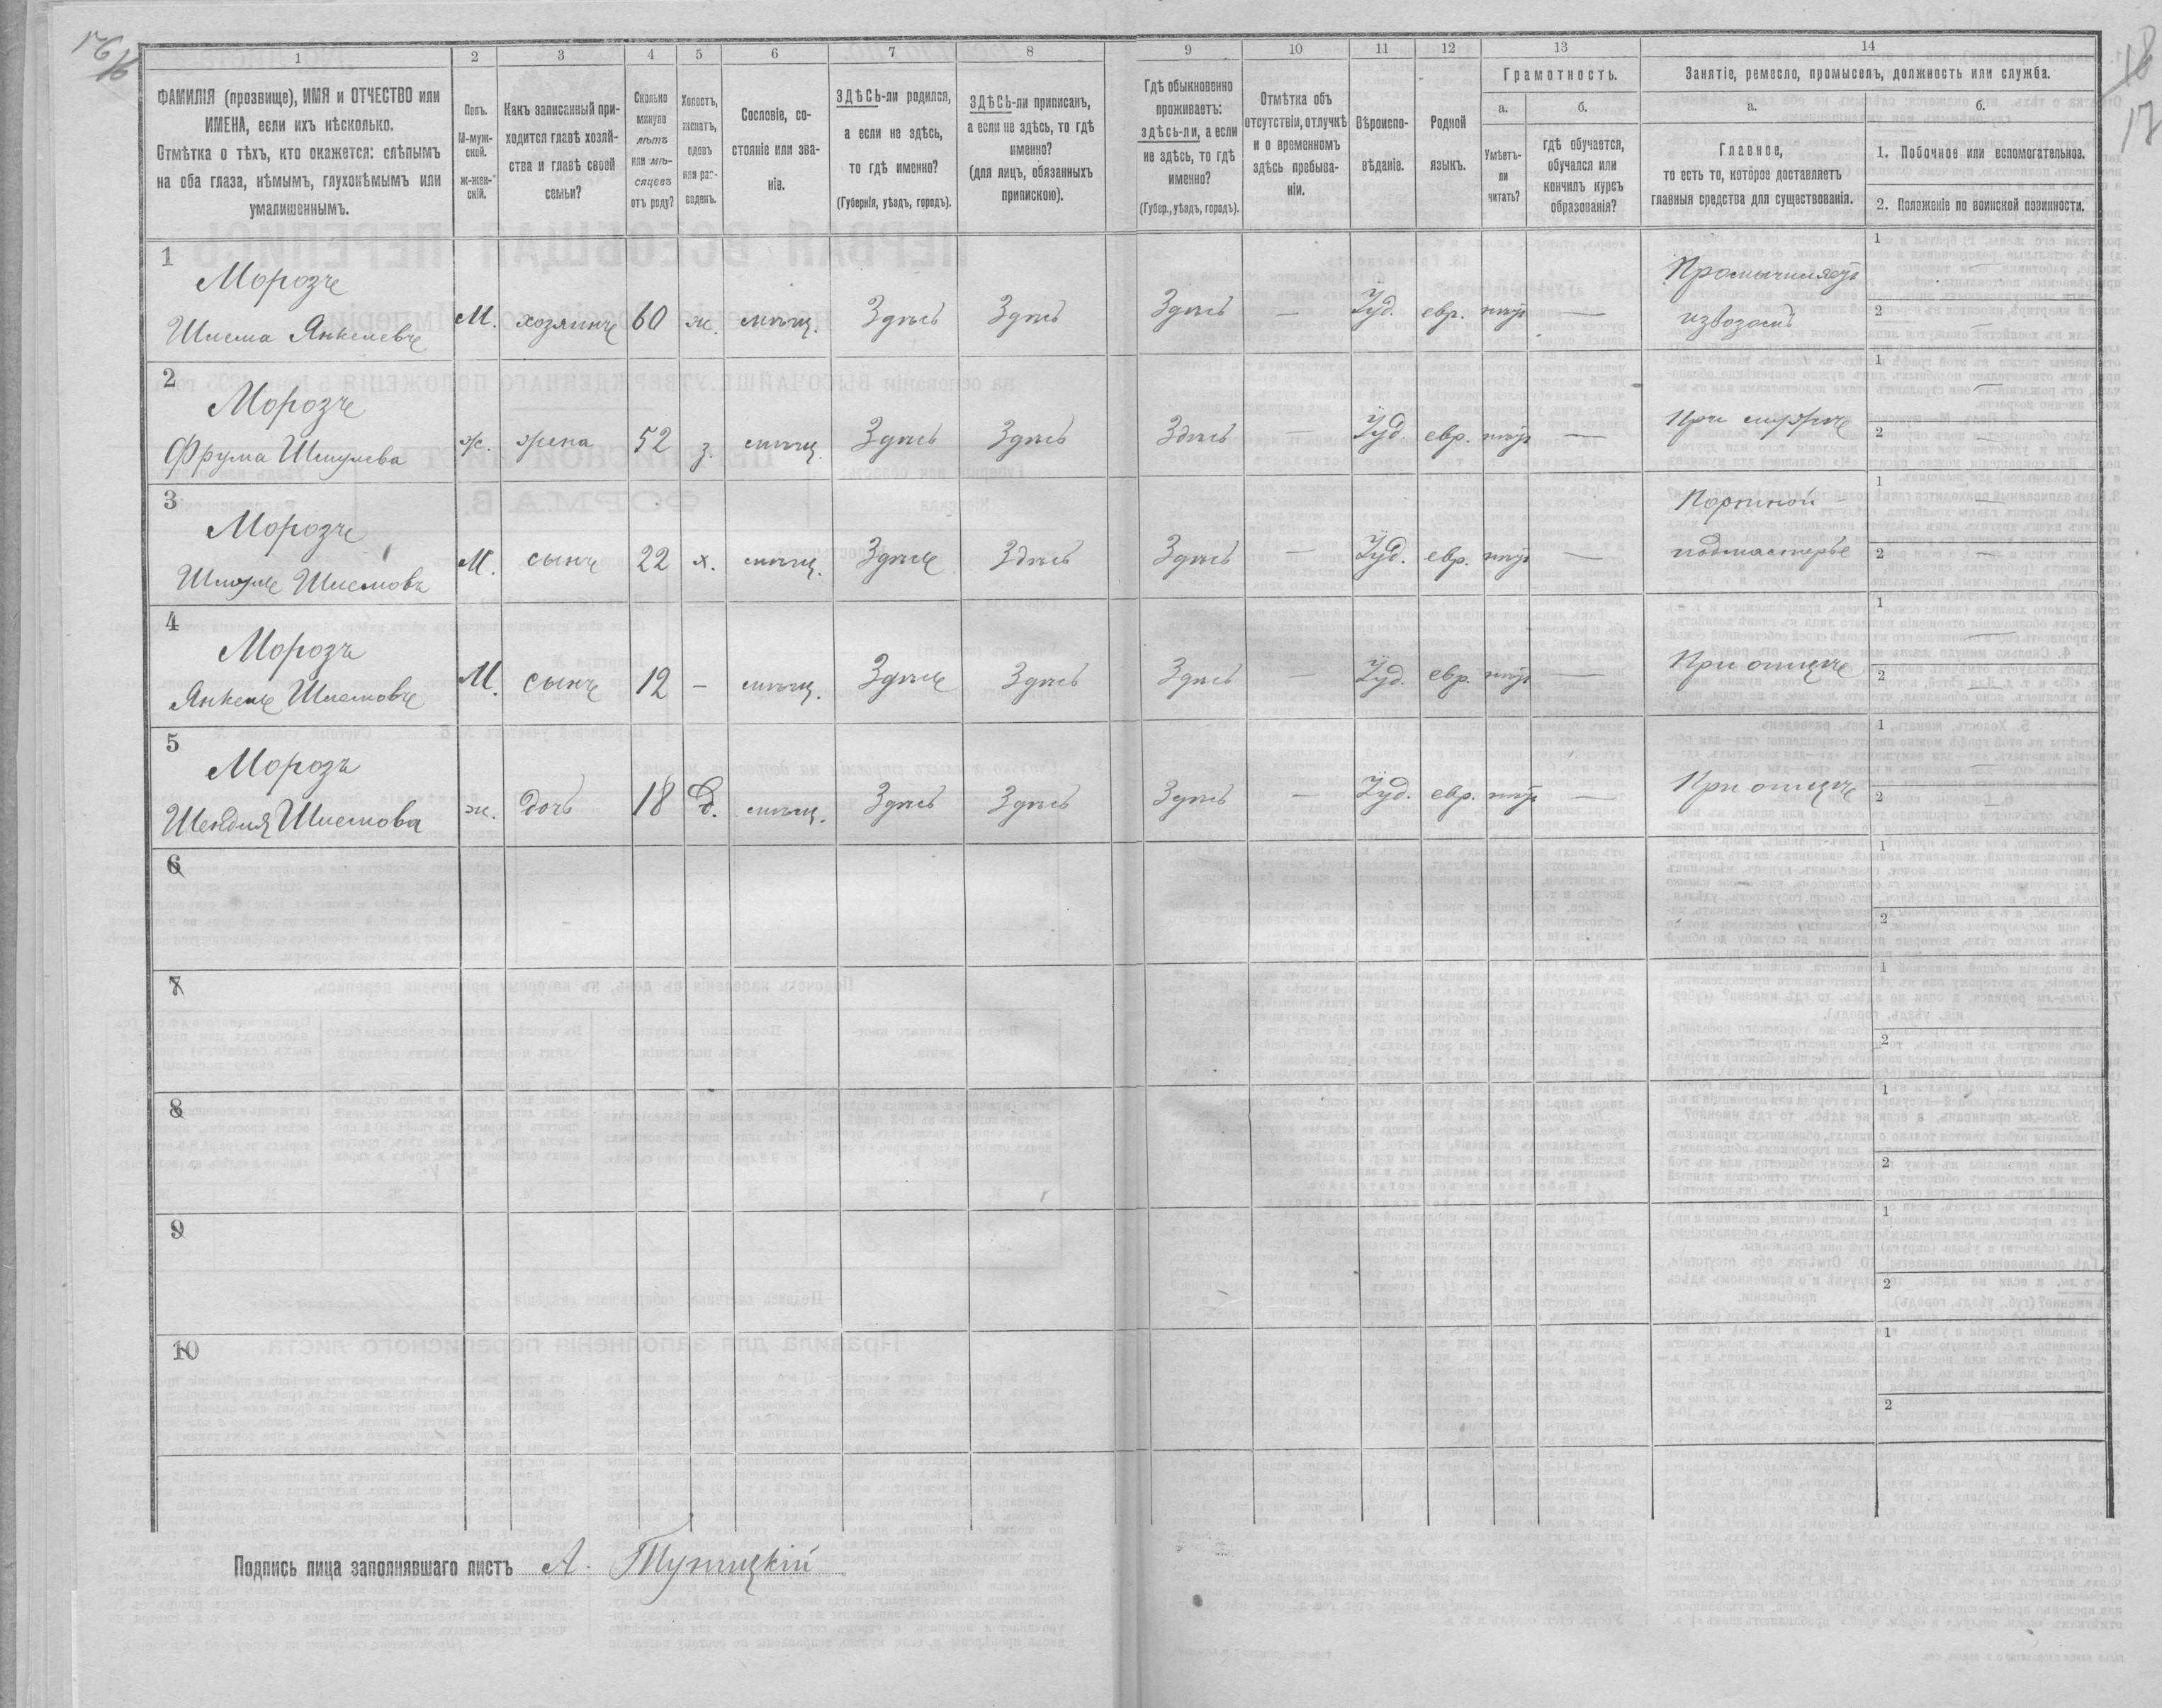 1
2
3
4
5
6
7
8
9
10
11
12
13
14
ФАМИЛІЯ (прозвище), ИМЯ и ОТЧЕСТВО или
ИМЕНА, если ихъ нѣсколько.
Отмѣтка о тѣхъ, кто окажется: слѣпымъ
на оба глаза, нѣмымъ, глухонѣмымъ или
умалишеннымъ.
Полъ.
М-муж-
ской.
ж-жен-
скій.
Какъ записанный при-
ходится главѣ хозяй-
ства и главѣ своей
семьи?
Сколько
минуло
лѣтъ
или мѣ-
сяцевъ
отъ роду?
Холостъ,
женатъ,
вдовъ
или раз-
веденъ.
Сословіе, со-
стояніе или зва-
ніе.
ЗДѢСЬ-ли родился,
а если не здѣсь,
то гдѣ именно?
(Губернія, уѣздъ, городъ).
ЗДѢСЬ-ли приписанъ,
а если не здѣсь, то гдѣ
именно?
(для лицъ, обязанныхъ
припискою).
Гдѣ обыкновенно
проживаетъ:
здѣсь-ли, а если
не здѣсь, то гдѣ
именно?
(Губер., уѣздъ, городъ).
Отмѣтка объ
отсутствіи, отлучкѣ
и о временномъ
здѣсь пребыва-
ніи.
Вѣроиспо-
вѣданіе.
Родной
языкъ.
Грамотность.
а.
Умѣетъ-
ли
читать?
б.
гдѣ обучается,
обучался или
кончилъ курсъ
образованія?
Занятіе, ремесло, промыселъ, должность или служба.
а.
Главное,
то есть то, которое доставляетъ
главныя средства для существованія.
б.
1. Побочное или вспомогательное.
2. Положеніе по воинской повинности.
1
Морозъ
Шлема Янкелевъ М. хозяинъ 60 ж. мѣщ. Здѣсь Здѣсь Здѣсь — Іуд. евр. — Промышляетъ
извозомъ
1 —
2 —
2
Морозъ
Фрума Шмулева ж. жена 52 з. мѣщ. Здѣсь Здѣсь Здѣсь — Іуд. евр. — При мужѣ
1 —
2 —
3
Морозъ
Шмуль Шлемовъ М. сынъ 22 х. мѣщ. Здѣсь Здѣсь Здѣсь — Іуд. евр. — Портной
подмастерье
1 —
2 —
4
Морозъ
Янкель Шлемовъ М. сынъ 12 — мѣщ. Здѣсь Здѣсь Здѣсь — Іуд. евр. — При отцѣ
1 —
2 —
5
Морозъ
Шендля Шлемова ж. дочь 18 д. мѣщ. Здѣсь Здѣсь Здѣсь — Іуд. евр. — При отцѣ
1 —
2 —
6
1
2
7
1
2
8
1
2
9
1
2
10
1
2
Подпись лица заполнявшаго листъ А.